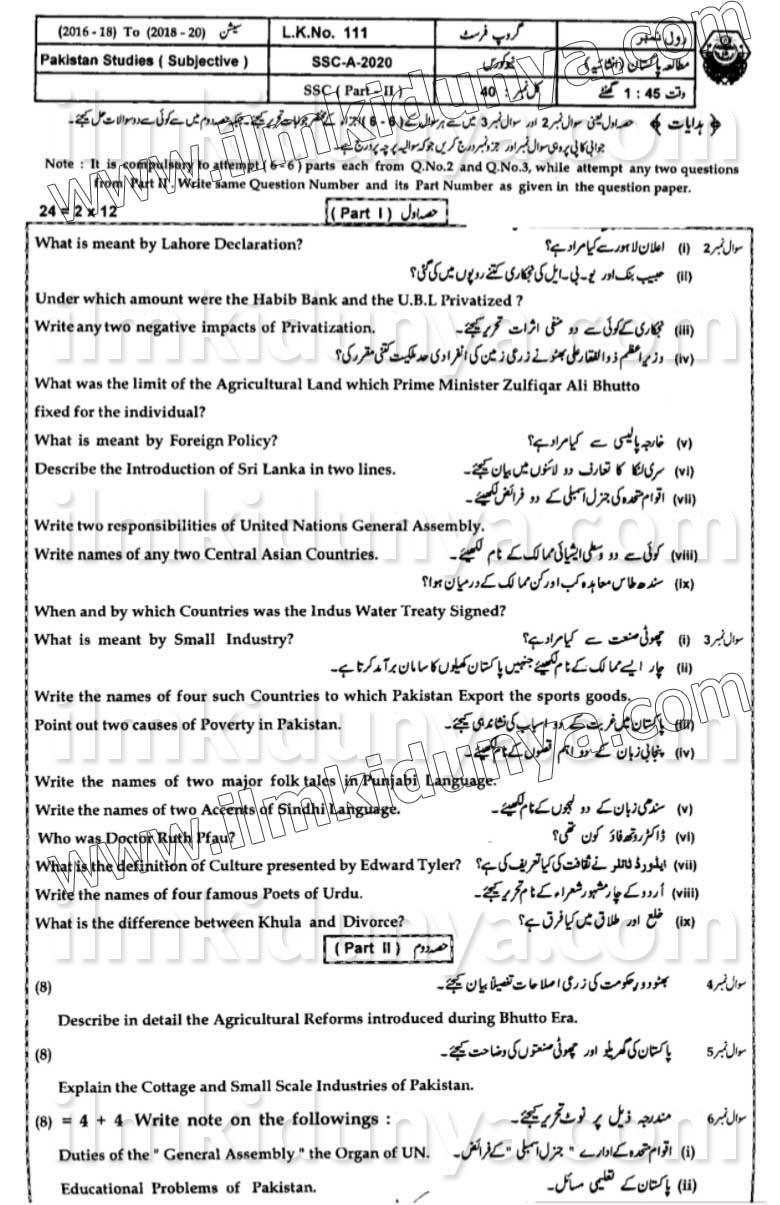 (2016 - 18) To (2018 - 20) سیشن L.K.No. 111 گروپ فرسٹ رول نمبر
Pakistan Studies ( Subjective ) SSC-A-2020 نیو کورس مطالعہ پاکستان (انشائیہ)
SSC ( Part - II ) کل نمبر : 40 وقت 1 : 45 گھنٹے
﴿ ہدایات ﴾ حصہ اول یعنی سوال نمبر 2 اور سوال نمبر 3 میں سے ہر سوال کے (6 - 6) اجزاء کے مختصر جوابات تحریر کیجئے۔ جبکہ حصہ دوم میں سے کوئی سے دو سوالات حل کیجئے۔
جوابی کاپی پر وہی سوال نمبر اور جزو نمبر درج کریں جو کہ سوالیہ پرچہ پر درج ہے۔
Note : It is compulsory to attempt ( 6 - 6 ) parts each from Q.No.2 and Q.No.3, while attempt any two questions
from Part II . Write same Question Number and its Part Number as given in the question paper.
24 = 2 x 12 ( Part I ) حصہ اول
What is meant by Lahore Declaration? سوال نمبر 2 (i) اعلان لاہور سے کیا مراد ہے؟
(ii) حبیب بنک اور یو۔ بی۔ ایل کی نجکاری کتنے روپوں میں کی گئی؟
Under which amount were the Habib Bank and the U.B.L Privatized ?
Write any two negative impacts of Privatization. (iii) نجکاری کے کوئی سے دو منفی اثرات تحریر کیجئے۔
(iv) وزیراعظم ذوالفقار علی بھٹو نے زرعی زمین کی انفرادی حد ملکیت کتنی مقرر کی؟
What was the limit of the Agricultural Land which Prime Minister Zulfiqar Ali Bhutto
fixed for the individual?
What is meant by Foreign Policy? (v) خارجہ پالیسی سے کیا مراد ہے؟
Describe the Introduction of Sri Lanka in two lines. (vi) سری لنکا کا تعارف دو لائنوں میں بیان کیجئے۔
(vii) اقوام متحدہ کی جنرل اسمبلی کے دو فرائض لکھیئے۔
Write two responsibilities of United Nations General Assembly.
Write names of any two Central Asian Countries. (viii) کوئی سے دو وسطی ایشیائی ممالک کے نام لکھیئے۔
(ix) سندھ طاس معاہدہ کب اور کن ممالک کے درمیان ہوا؟
When and by which Countries was the Indus Water Treaty Signed?
What is meant by Small Industry? سوال نمبر 3 (i) چھوٹی صنعت سے کیا مراد ہے؟
(ii) چار ایسے ممالک کے نام لکھیئے جنہیں پاکستان کھیلوں کا سامان برآمد کرتا ہے۔
Write the names of four such Countries to which Pakistan Export the sports goods.
Point out two causes of Poverty in Pakistan. (iii) پاکستان میں غربت کے دو اسباب کی نشاندہی کیجئے۔
(iv) پنجابی زبان کے دو اہم قصوں کے نام لکھیئے۔
Write the names of two major folk tales in Punjabi Language.
Write the names of two Accents of Sindhi Language. (v) سندھی زبان کے دو لہجوں کے نام لکھیئے۔
Who was Doctor Ruth Pfau? (vi) ڈاکٹر روتھ فاؤ کون تھی؟
What is the definition of Culture presented by Edward Tyler? (vii) ایڈورڈ ٹائلر نے ثقافت کی کیا تعریف کی ہے؟
Write the names of four famous Poets of Urdu. (viii) اُردو کے چار مشہور شعراء کے نام تحریر کیجئے۔
What is the difference between Khula and Divorce? (ix) خلع اور طلاق میں کیا فرق ہے؟
( Part II ) حصہ دوم
(8) سوال نمبر 4 بھٹو دور حکومت کی زرعی اصلاحات تفصیلاً بیان کیجئے۔
Describe in detail the Agricultural Reforms introduced during Bhutto Era.
(8) سوال نمبر 5 پاکستان کی گھریلو اور چھوٹی صنعتوں کی وضاحت کیجئے۔
Explain the Cottage and Small Scale Industries of Pakistan.
(8) = 4 + 4 Write note on the followings : سوال نمبر 6 مندرجہ ذیل پر نوٹ تحریر کیجئے۔
Duties of the " General Assembly " the Organ of UN. (i) اقوام متحدہ کے ادارے " جنرل اسمبلی " کے فرائض۔
Educational Problems of Pakistan. (ii) پاکستان کے تعلیمی مسائل۔
www.ilmkidunya.com
www.ilmkidunya.com
ilmkidunya.com
ilmkidunya.com
ilmkidunya.com
ilmkidunya.com
ilmkidunya.com